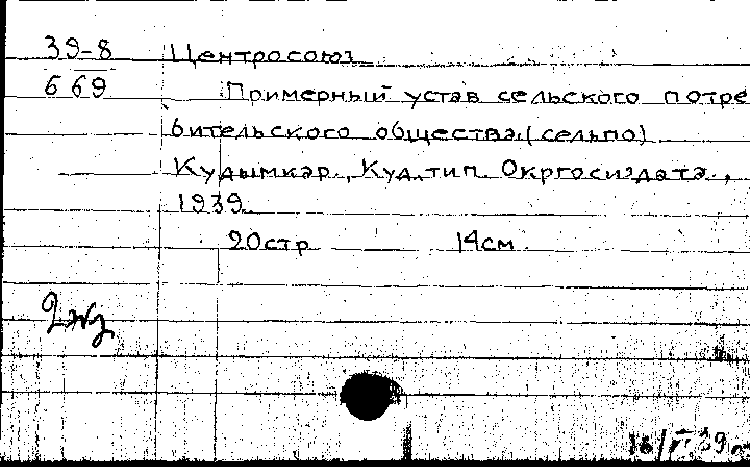 39-8 Центросоюз
669 Примерный устав сельского потре
бительского общества (сельпо)
Кудымкар, Куд. тип. Окргосиздата,
1939
20 стр 14 см
2 экз